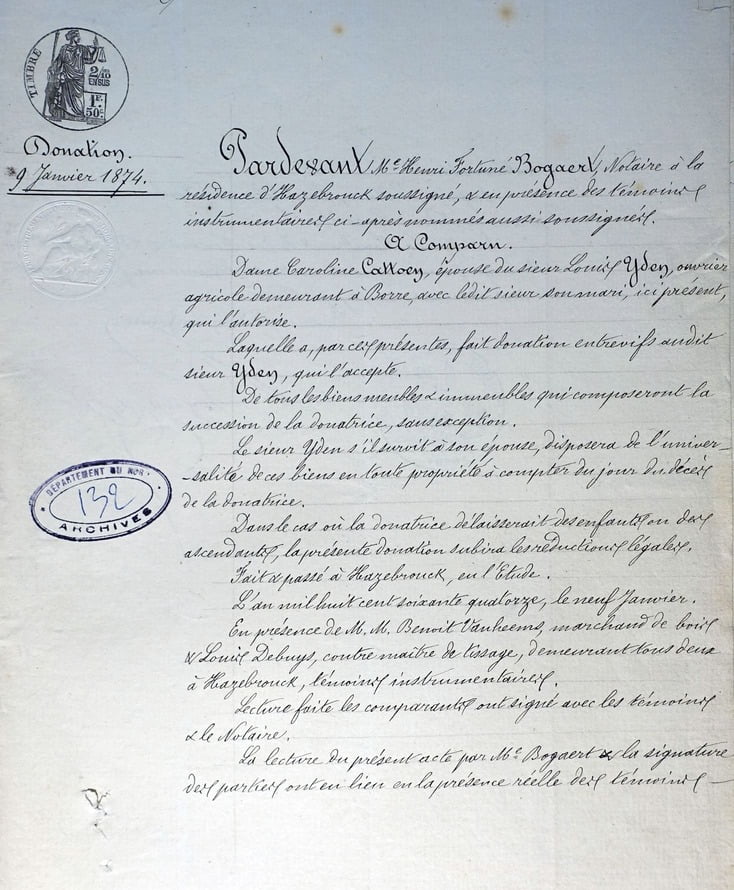 TIMBRE
2/10
EN SUS
1F.
50c.
Donation.
9 Janvier 1874.
Pardevant Me. Henri Fortuné Bogaert, Notaire à la
résidence d'Hazebrouck soussigné, & en présence des témoins
instrumentaires ci-après nommés aussi soussignés.
A Comparu.
Dame Caroline Cattoen, épouse du sieur Louis Yden, ouvrier
agricole demeurant à Borre, avec ledit sieur son mari, ici présent,
qui l'autorise.
Laquelle a, par ces présentes, fait donation entrevifs audit
sieur Yden, qui l'accepte.
De tous les biens meubles & immeubles qui composeront la
succession de la donatrice, sans exception.
Le sieur Yden s'il survit à son épouse, disposera de l'univer-
-salité de ces biens en toute propriété à compter du jour du décès
de la donatrice.
Dans le cas où la donatrice délaisserait des enfants ou des
ascendants, la présente donation subira les réductions légales.
Fait & passé à Hazebrouck, en l'Etude.
L'an mil huit cent soixante quatorze, le neuf Janvier.
En présence de M. M. Benoit Vanheems, marchand de bois
& Louis Debuys, contre maître de tissage, demeurant tous deux
à Hazebrouck, témoins instrumentaires.
Lecture faite les comparants ont signé avec les témoins
& le Notaire.
La lecture du présent acte par Me. Bogaert & la signature
des parties ont eu lieu en la présence réelle des témoins —
DÉPARTEMENT DU NORD
132
ARCHIVES